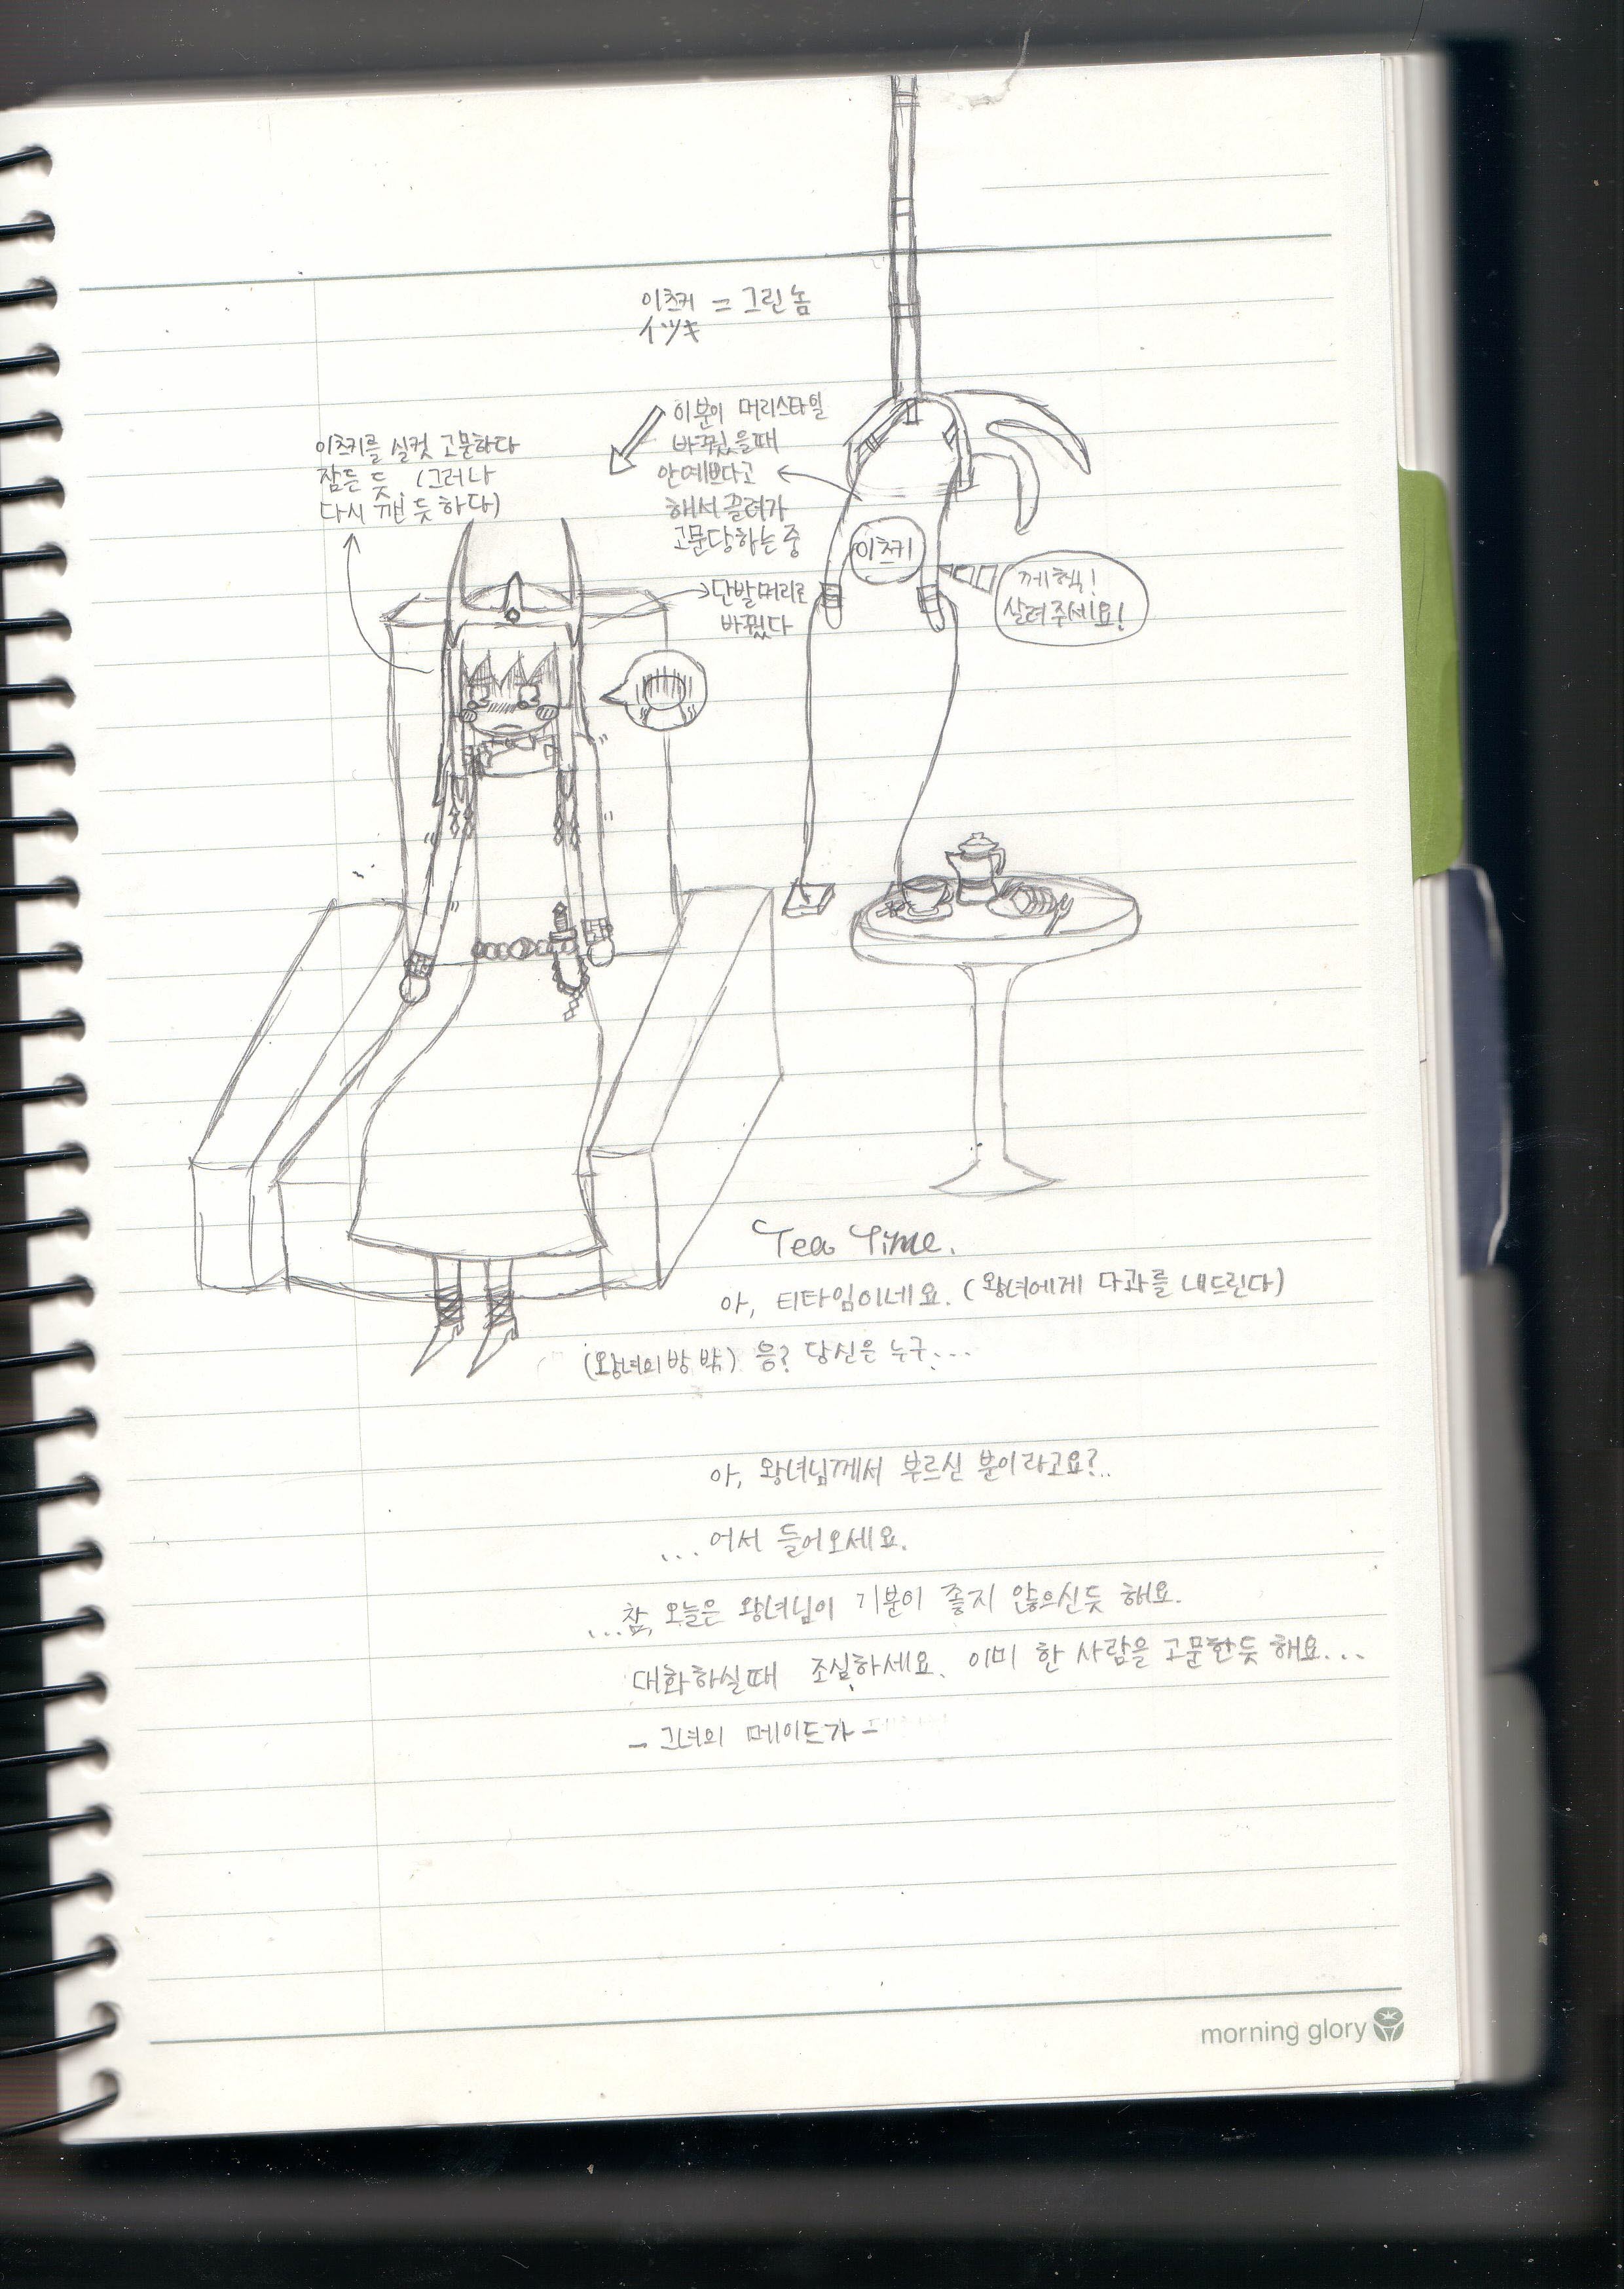 이츠키 = 그린 놈
イツキ
이분이 머리스타일
바꿨을때
안예쁘다고
해서 끌려가
고문당하는 중
이츠키를 실컷 고문하다
잠든 듯. (그러나
다시 깬 듯 하다)
이츠키
께헥!
살려주세요!
단발머리로
바꿨다
Tea Time.
아, 티타임이네요. (왕녀에게 다과를 내드린다)
(왕녀의 방 밖) 응? 당신은 누구...
아, 왕녀님께서 부르신 분이라고요?..
...어서 들어오세요.
...참, 오늘은 왕녀님이 기분이 좋지 않으신듯 해요.
대화하실때 조심하세요. 이미 한 사람을 고문한듯 해요...
- 그녀의 메이드가 -
morning glory